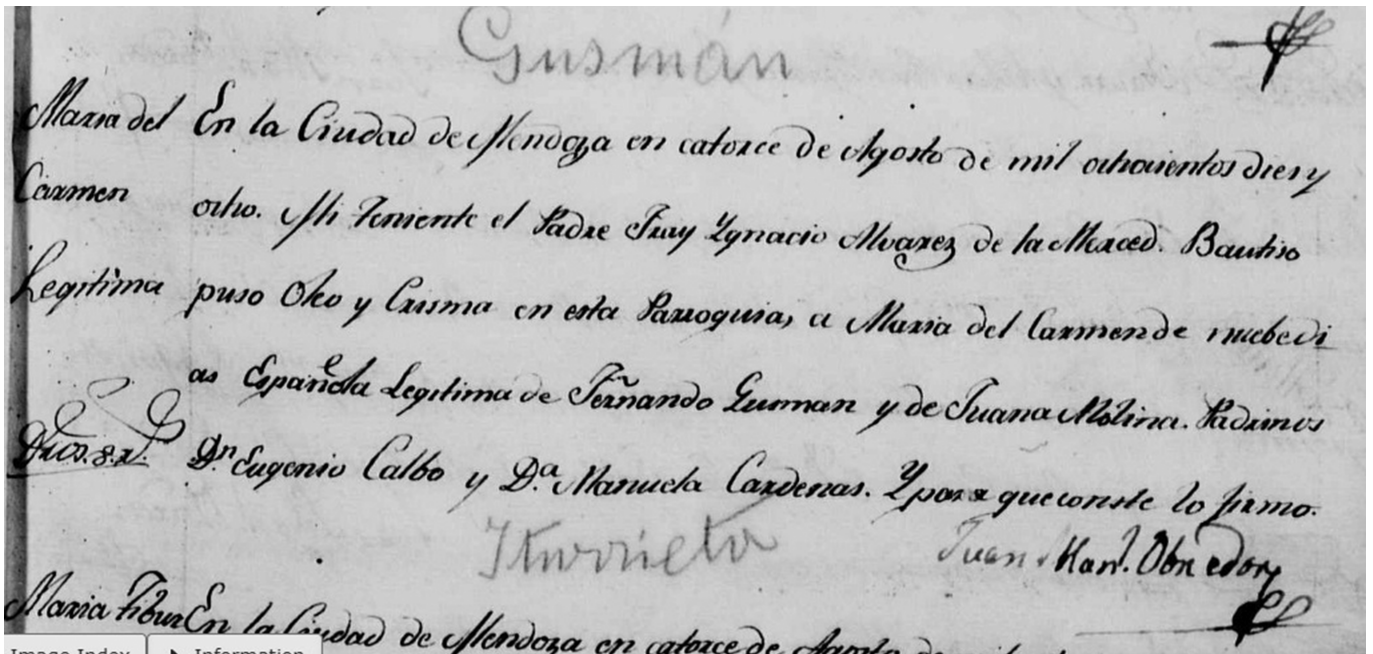 Gusmán
Maria del En la Ciudad de Mendoza en catorce de Agosto de mil ochocientos dies y
Carmen ocho. Mi Teniente el Padre Fray Ygnacio Alvarez de la Merced. Bautiso
Legitima puso Oleo y Crisma en esta Parroquia, a Maria del Carmen de nuebe di
as Española Legitima de Fernando Gusman y de Juana Molina. Padrinos
Dn. Eugenio Calbo y Da. Manuela Cardenas. Y para que conste lo firmo.
Iturrieta Juan Manl. Obredor
Maria Tibur En la Ciudad de Mendoza en catorce de Agosto de mil
Image Index Information